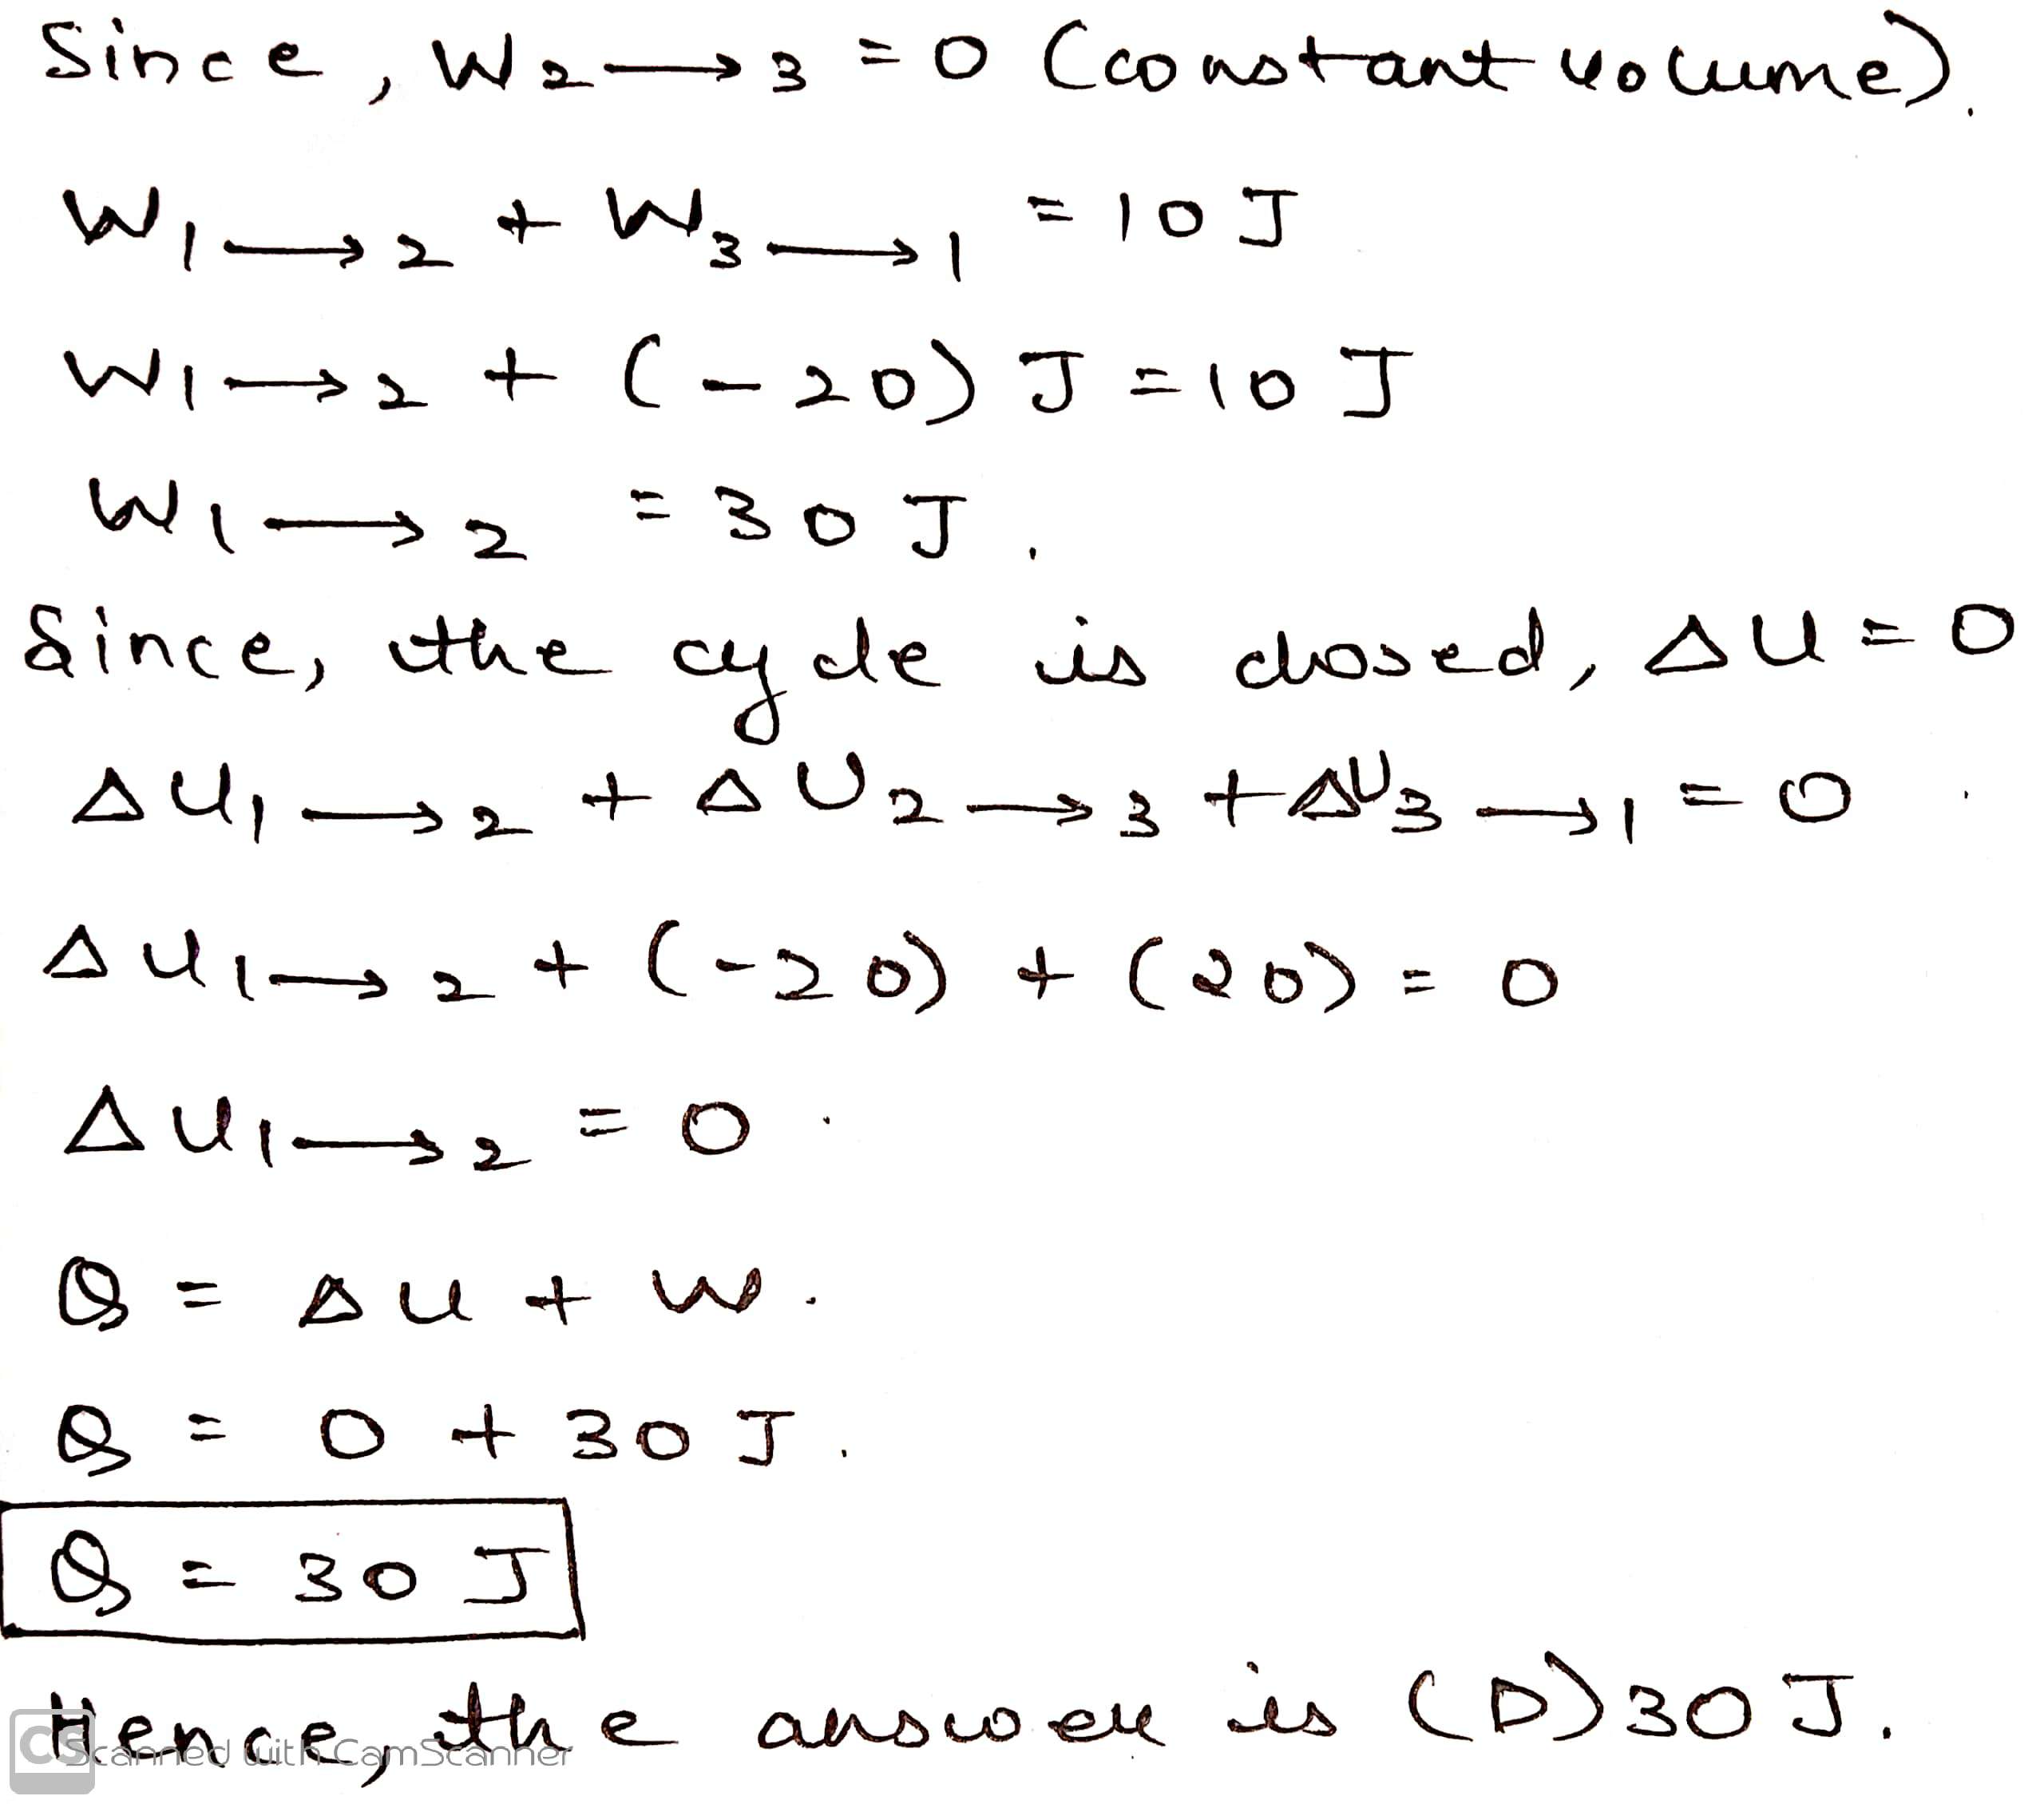 Since, W2→3 = 0 (constant volume).
W1→2 + W3→1 = 10 J
W1→2 + (-20) J = 10 J
W1→2 = 30 J.
Since, the cycle is closed, ΔU = 0
ΔU1→2 + ΔU2→3 + ΔU3→1 = 0.
ΔU1→2 + (-20) + (20) = 0
ΔU1→2 = 0.
Q = ΔU + W.
Q = 0 + 30 J.
Q = 30 J
Hence, the answer is (D) 30 J.
CS Scanned with CamScanner